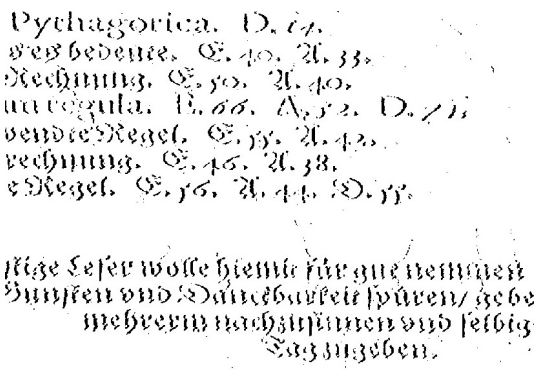 Pythagorica. D. 14.
bedeute. E. 40. A. 33.
Rechnung. E. 50. A. 40.
regula. E. 66. A. 52. D.
Regel. E. 55. A. 42.
rechnung. E. 46. A. 38.
e Regel. E. 56. A. 44. D. 55.
Leser wolle hiemit für gut nemmen
vnd Danckbarkeit spüren/ gebe
mehrerm nachzusinnen vnd selbig
Tag zugeben.